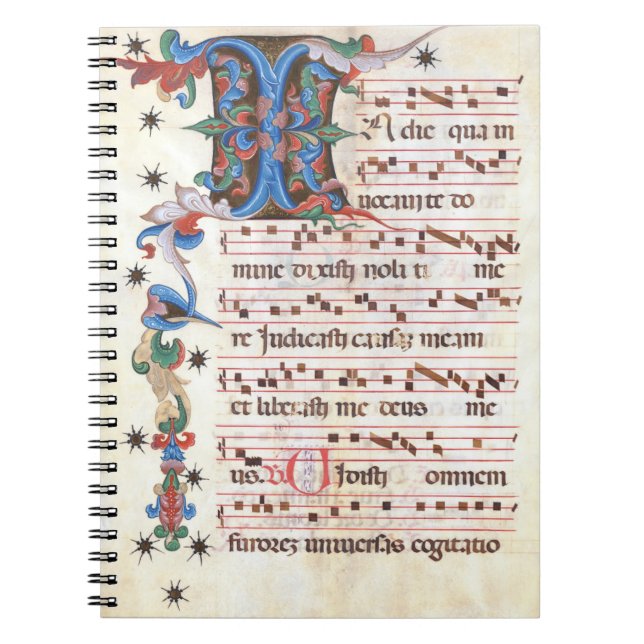 In die qua in
uocaui te do
mine dixisti noli ti me
re Iudicasti causaz meam
et liberasti me deus me
us. V. Uidisti omnem
furorez universas cogitatio